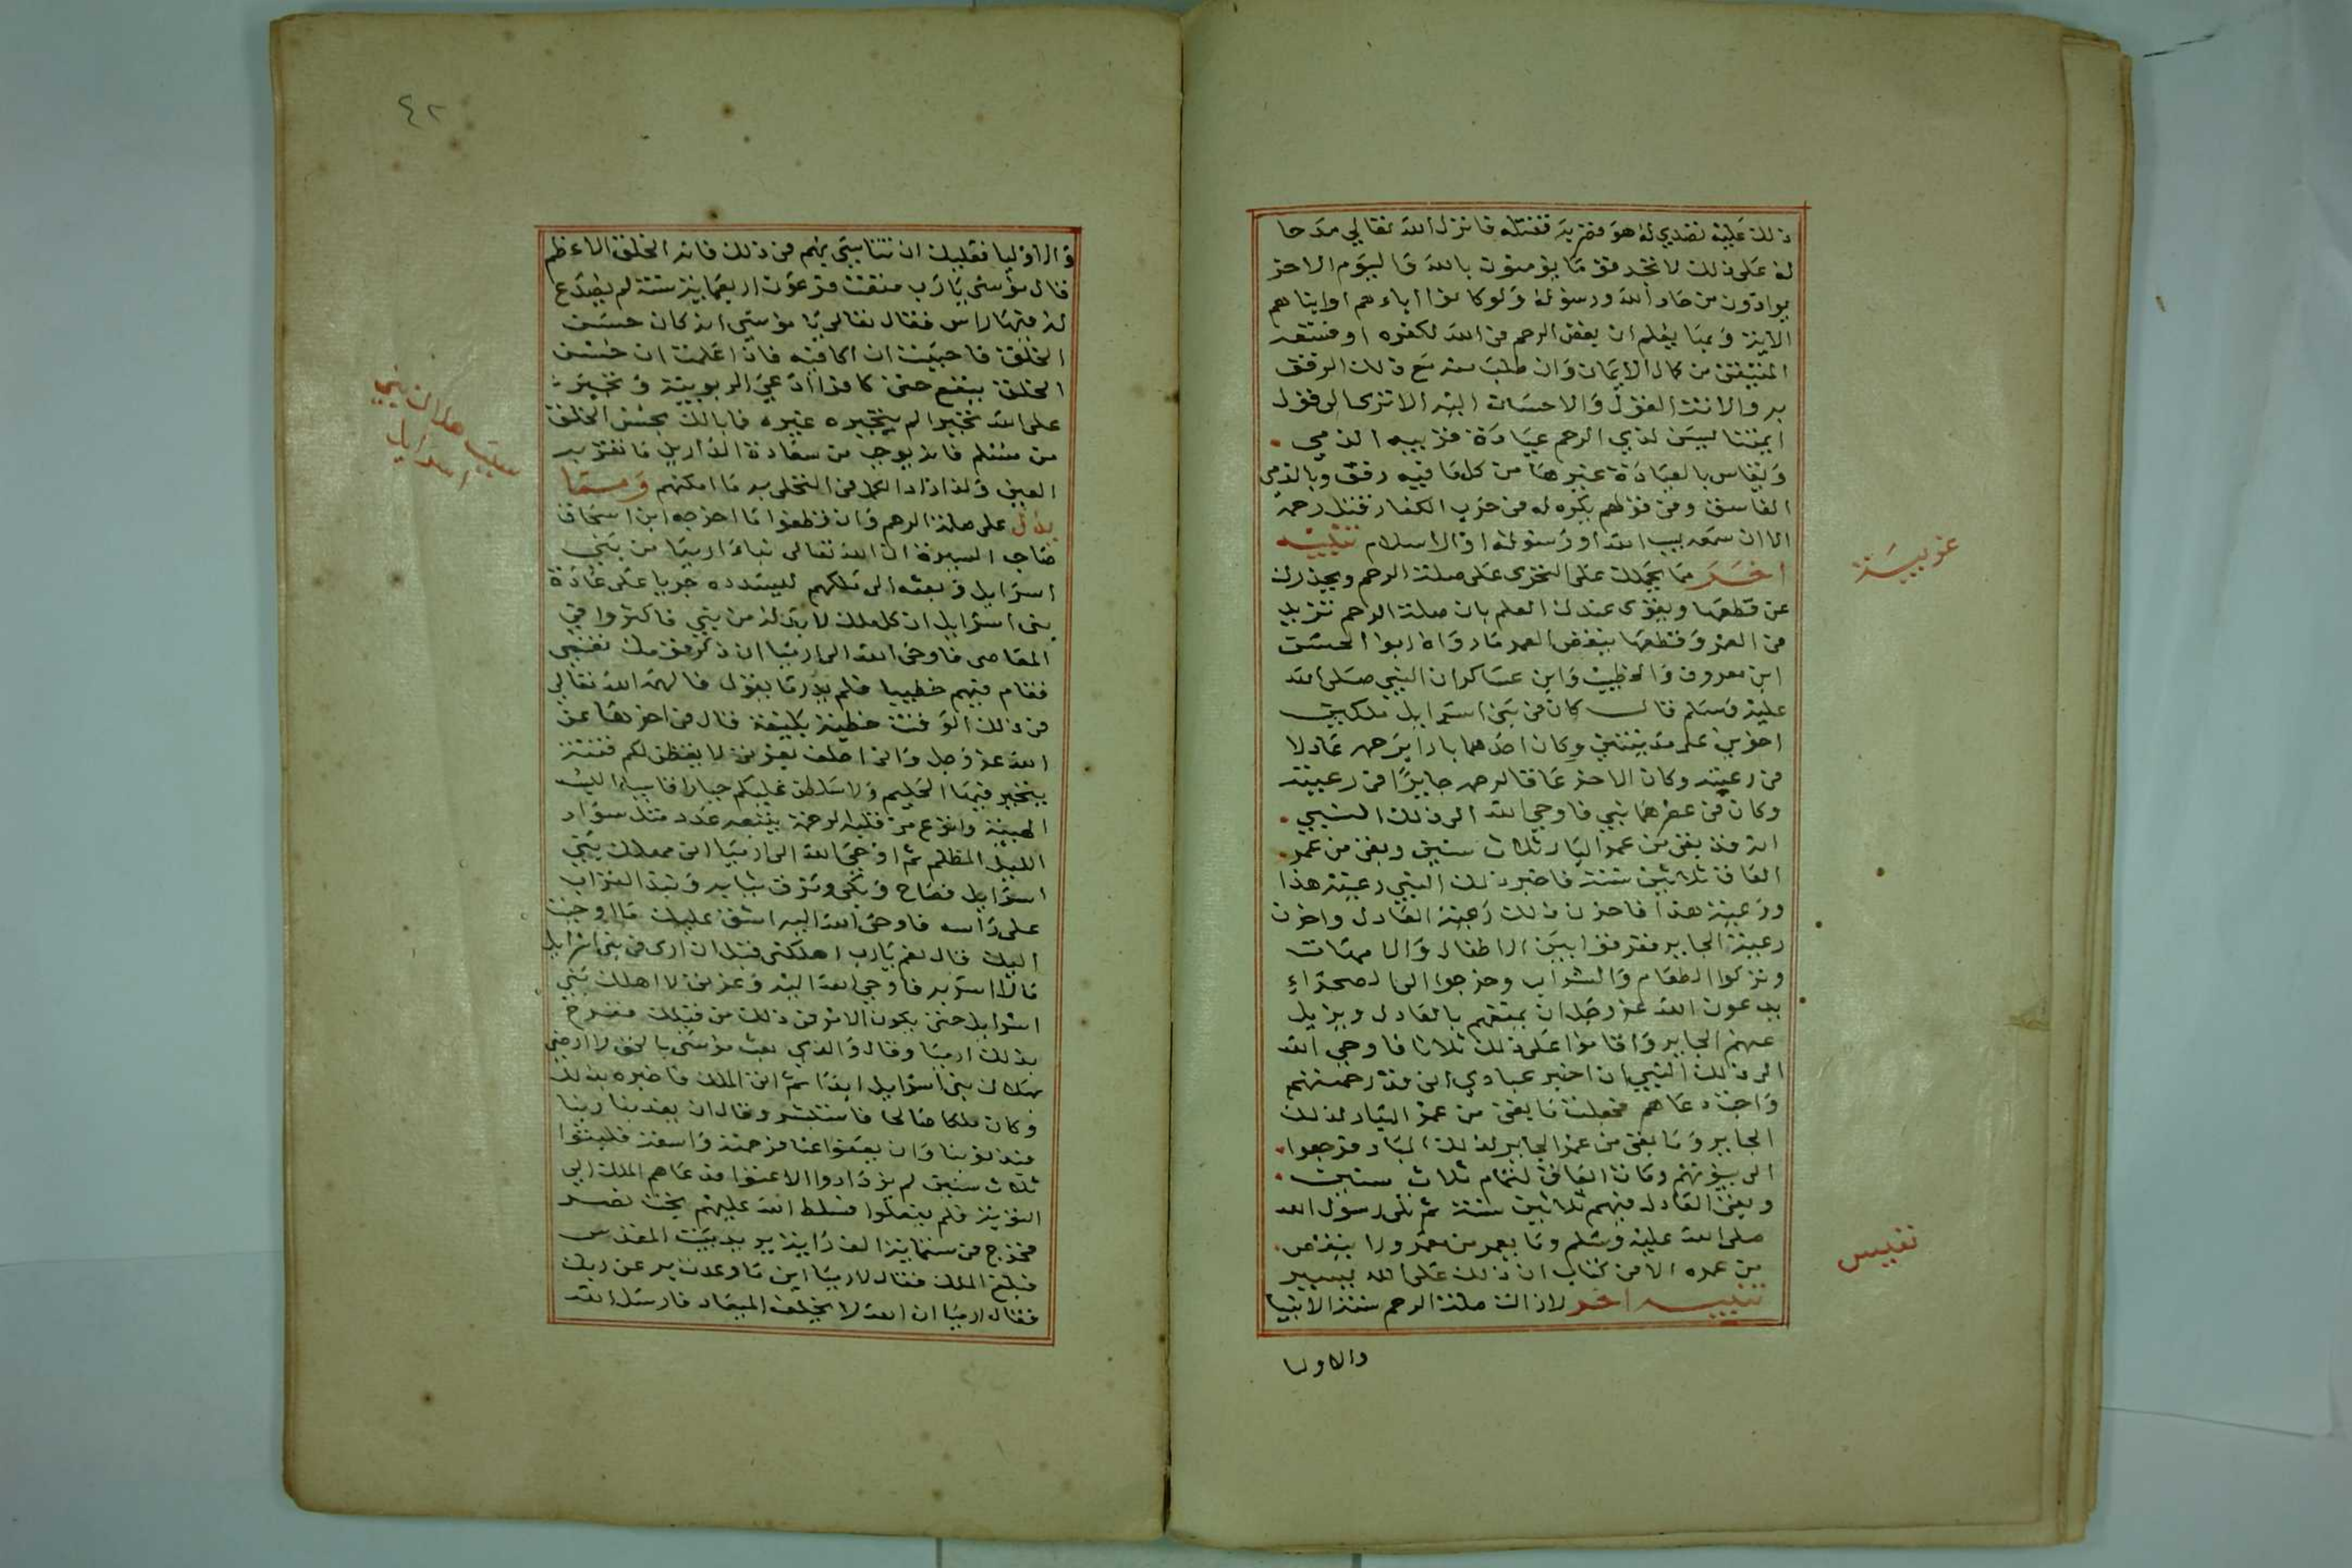 ذلك عليه تصدي له هو فضربه فقتله فانزل الله تعالي مدحا
له على ذلك لا تجد قوما يؤمنون بالله واليوم الاخر
يوادون من حاد الله ورسوله ولو كانوا اباءهم او ابناهم
الاية وبما يعلم ان بغض الرحم في الله لكفره او فسقه
من كمال الايمان وان طلب منه مع ذلك الرفق
به والانة القول والاحسان اليه الا ترى الى قول
ايمتنا ليسن لذي الرحم عيادة قريبه الذمي
ويقاس بالعيادة غيرها من كل ما فيه رفق وبالذمي
الفاسق ومن قولهم يكره له في حرب الكفار قتل رحمه
الا ان سمعه يسب الله او رسوله او الاسلام تنبيه
اخر مما يحملك على التحري على صلة الرحم ويحذرك
عن قطعها ويقوى عندك العلم بان صلة الرحم تزيد
في العمر وقطعها ينقص العمر ما رواه ابوا الحسن
ابن معروف والخطيب وابن عساكر ان النبي صلى الله
عليه وسلم قال كان في بني اسرايل ملكين
اخوين على مدينتين وكان احدهما بارا برحمه عادلا
في رعيته وكان الاخر عاقا لرحمه جايرا في رعيته
وكان في عصرهما نبي فاوحي الله الى ذلك النبي
انه قد بقى من عمر البار ثلاث سنين وبقى من عمر
العاق ثلاثين سنة فاخبر ذلك النبي رعية هذا
ورعية هذا فاحزن ذلك رعية العادل واحزن
رعية الجاير ففرقوا بين الاطفال والامهات
وتركوا الطعام والشراب وخرجوا الى الصحراء
يدعون الله عز وجل ان يمتعهم بالعادل ويزيل
عنهم الجاير واقاموا على ذلك ثلاثا فاوحي الله
الى ذلك النبي ان اخبر عبادي اني قد رحمتهم
واجبت دعاهم فجعلت ما بقى من عمر البار لذلك
الجاير وما بقى من عمر الجاير لذلك البار فرجعوا
الى بيوتهم ومات العاق لتمام ثلاث سنين
وبقى العادل فيهم ثلاثين سنة ثم تلى رسول الله
صلى الله عليه وسلم وما يعمر من معمر ولا ينقص
من عمره الا في كتاب ان ذلك على الله يسير
تنبيه اخر لازالت صلة الرحم سنة الانبيا
والاوليا
غريبة
نفيس
٤٢
والاوليا فعليك ان تتاسى بهم في ذلك فانه الخلق الاعظم
قال موسى يا رب متعت فرعون اربعماية سنة لم يصدع
له فيها راس فقال تعالى يا موسى انه كان حسن
الخلق فاحببت ان اكافيه فاذا علمت ان حسن
الخلق ينفع حتى كافرا ادعى الربوبية وتجبر
على الله تجبرا لم يتجبره غيره فما بالك بحسن الخلق
من مسلم فانه يوجب من سعادة الدارين ما تقر به
العين ولذا ازداد الكمل في التخلى به ما امكنهم ومما
يدل على صلة الرحم وان قطعوا ما اخرجه ابن اسحاق
صاحب السيرة ان الله تعالى نباء ارميا من بني
اسرايل وبعثه الى ملكهم ليسدده جريا على عادة
بني اسرايل ان كل ملك لا بد له من نبي فاكثروا في
المعاصى فاوحى الله الى ارميا ان ذكر قومك نعمتي
فقام فيهم خطيبا فلم يدر ما يقول فالهمه الله تعالي
في ذلك الوقت خطبة بليغة قال في اخرها عن
الله عز وجل واني احلف بعزتي لا يقضن لكم فتنة
يتحير فيها الحليم ولاسلطن عليكم جبارا قاسيا البسه
الهيبة وانزع من قلبه الرحمة يتبعه عدد مثل سواد
الليل المظلم ثم اوحى الله الى ارميا اني مهلك بني
اسرايل فصاح وبكى ومزق ثيابه ونبذ التراب
على راسه فاوحى الله اليه اشق عليك ما اوحيت
اليك قال نعم يا رب اهلكني قبل ان ارى في بني اسرايل
مالا اسر به فاوحى الله اليه وعزتي لا اهلك بني
اسرايل حتى يكون الامر في ذلك من قبلك ففرح
بذلك ارميا وقال والذي بعث موسى بالحق لا ارضى
بهلاك بني اسرايل ابدا ثم اتى الملك فاخبره بذلك
وكان ملكا صالحا فاستبشر وقال ان يعذبنا ربنا
فبذنوبنا وان يعفوا عنا فرحمته واسعة فلبثوا
ثلاث سنين لم يزدادوا الا عتوا فدعاهم الملك الى
التوبة فلم يفعلوا فسلط الله عليهم بخت نصر
فخرج في ستماية الف راية يريد بيت المقدس
فبلغ الملك فقال لارميا اين ما وعدت به عن ربك
فقال ارميا ان الله لا يخلف الميعاد فارسل الله
هلاك بني
اسرايل